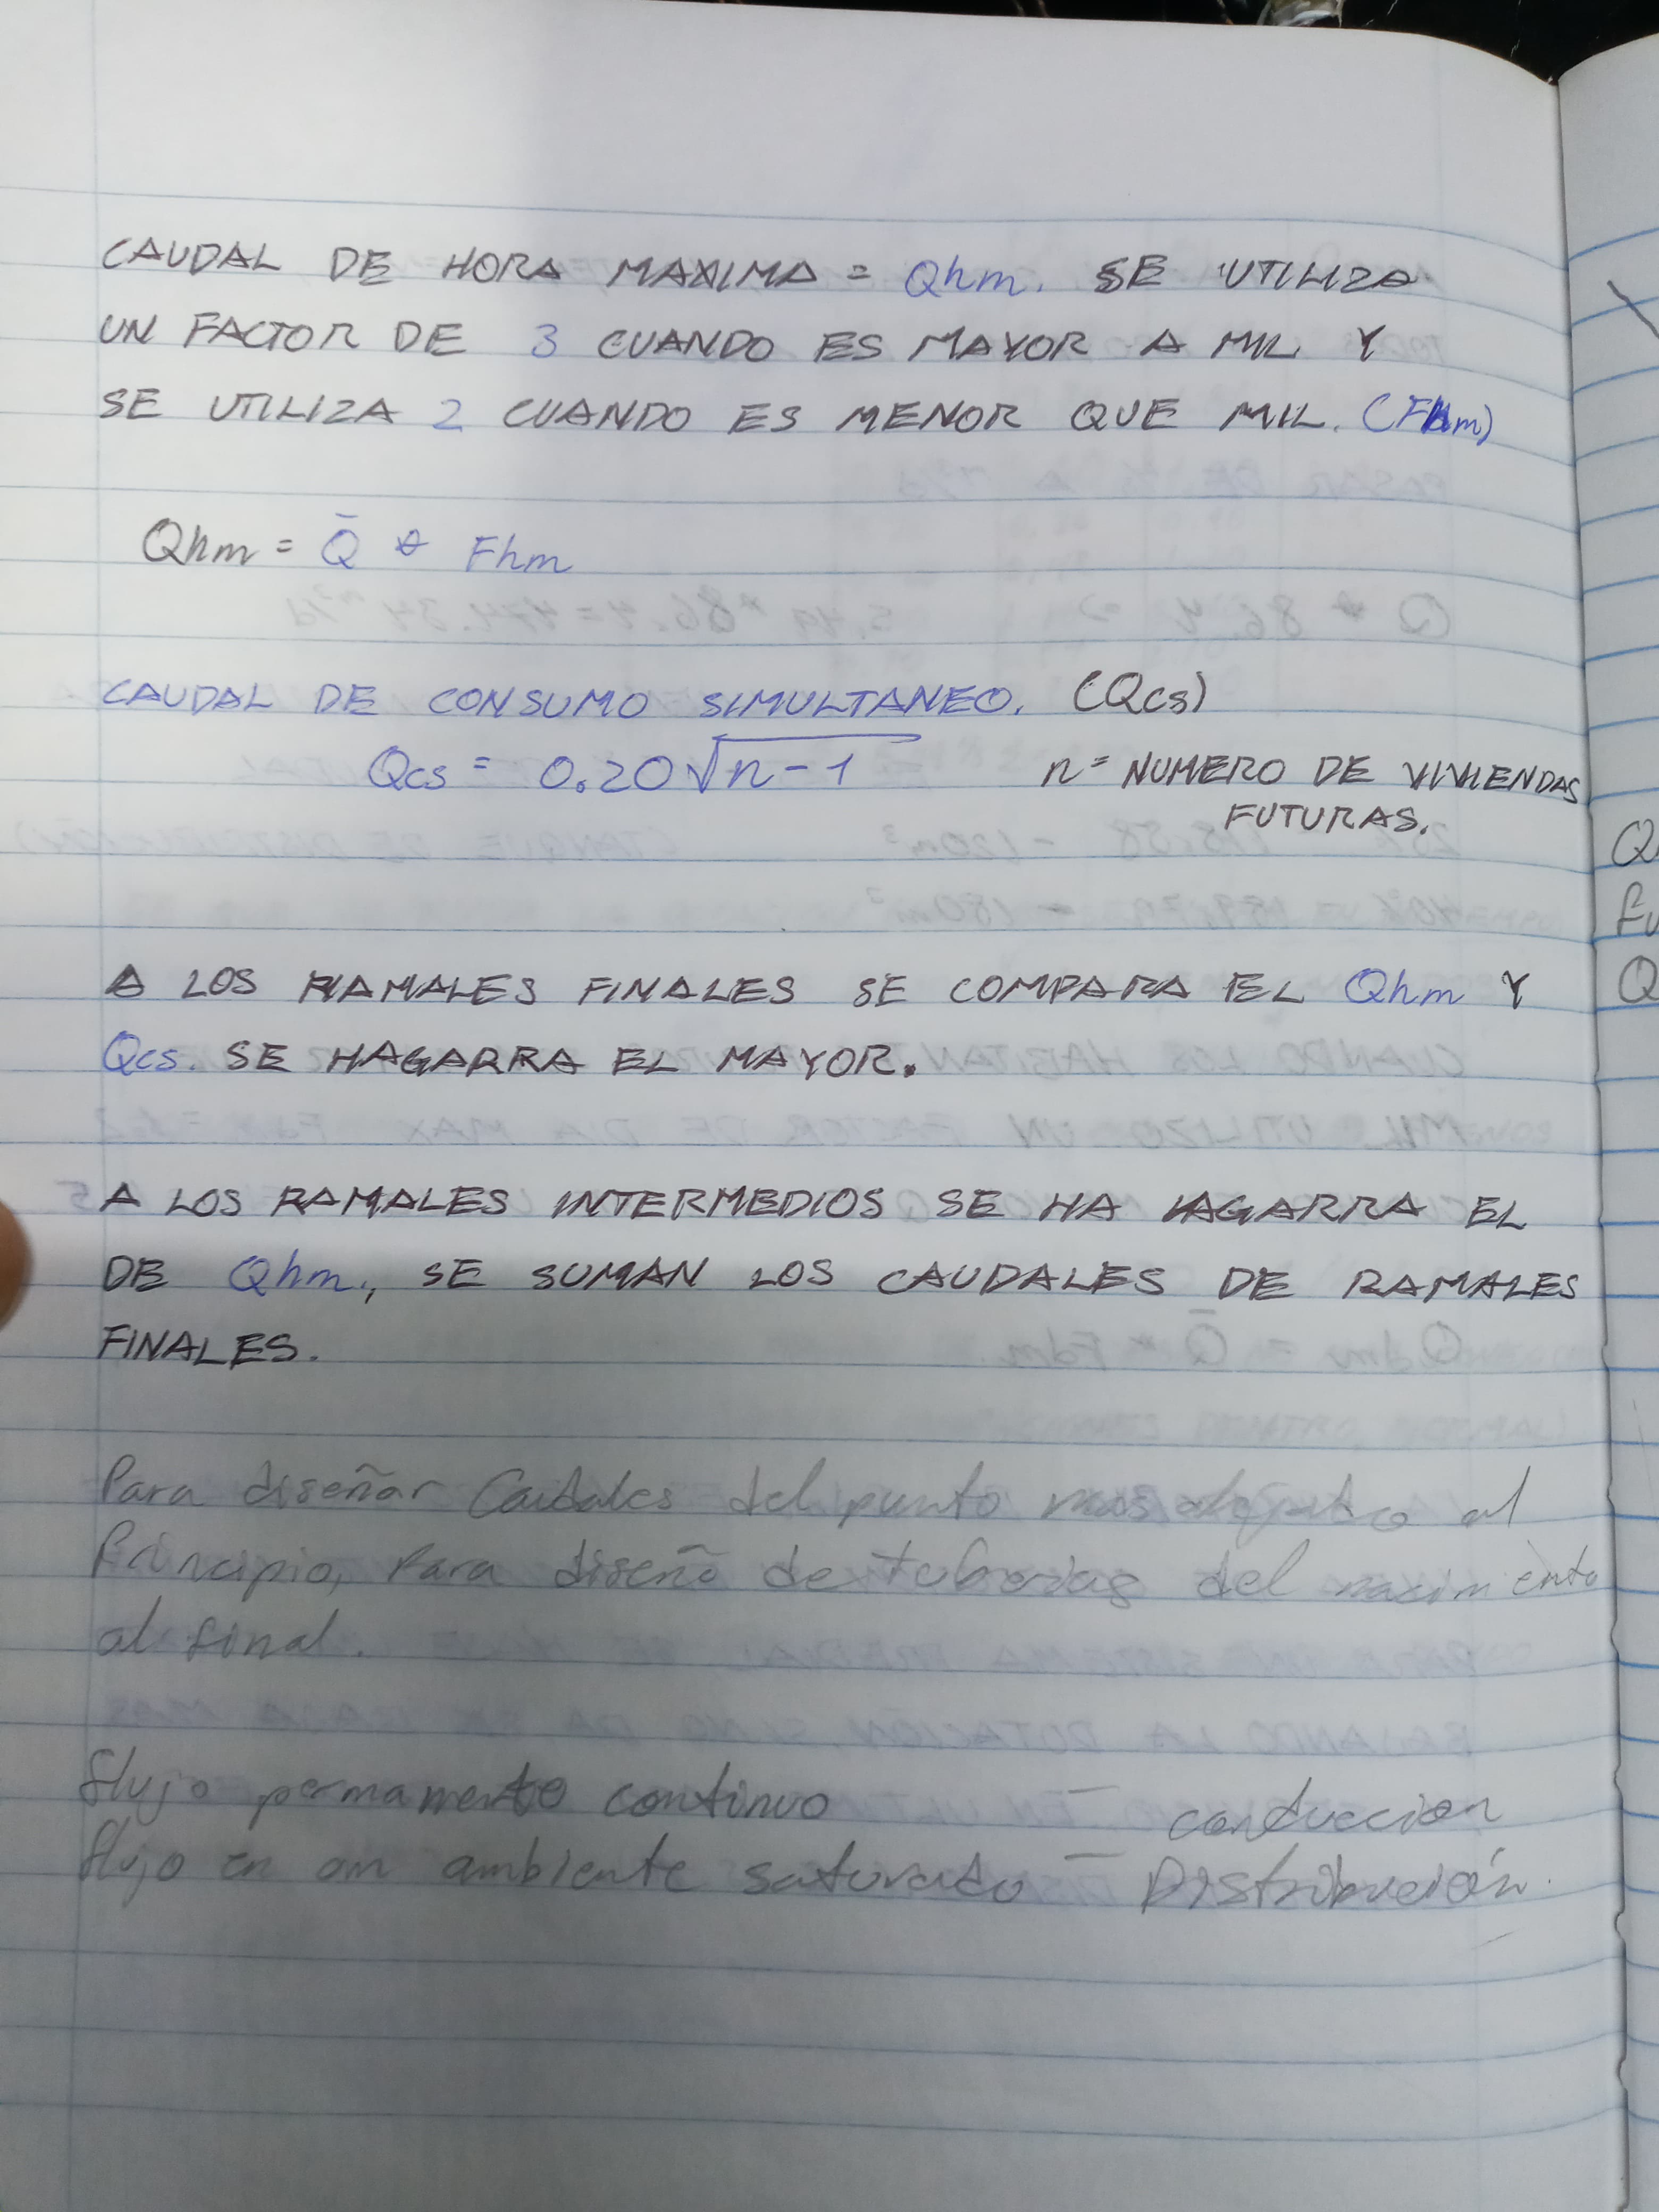 CAUDAL DE HORA MAXIMA = Qhm. SE UTILIZA
UN FACTOR DE 3 CUANDO ES MAYOR A MIL Y
SE UTILIZA 2 CUANDO ES MENOR QUE MIL. (Fhm)
Qhm = Q̄ * Fhm
CAUDAL DE CONSUMO SIMULTANEO. (Qcs)
Qcs = 0.20√n-1 n = NUMERO DE VIVIENDAS
FUTURAS.
A LOS RAMALES FINALES SE COMPARA EL Qhm Y
Qcs. SE HAGARRA EL MAYOR.
A LOS RAMALES INTERMEDIOS SE HA HAGARRA EL
DE Qhm., SE SUMAN LOS CAUDALES DE RAMALES
FINALES.
Para diseñar Caudales del punto mas alejado al
Principio, Para diseño de tuberias del nacimiento
al final.
flujo permamente continuo — conduccion
flujo en un ambiente saturado — Distribución.